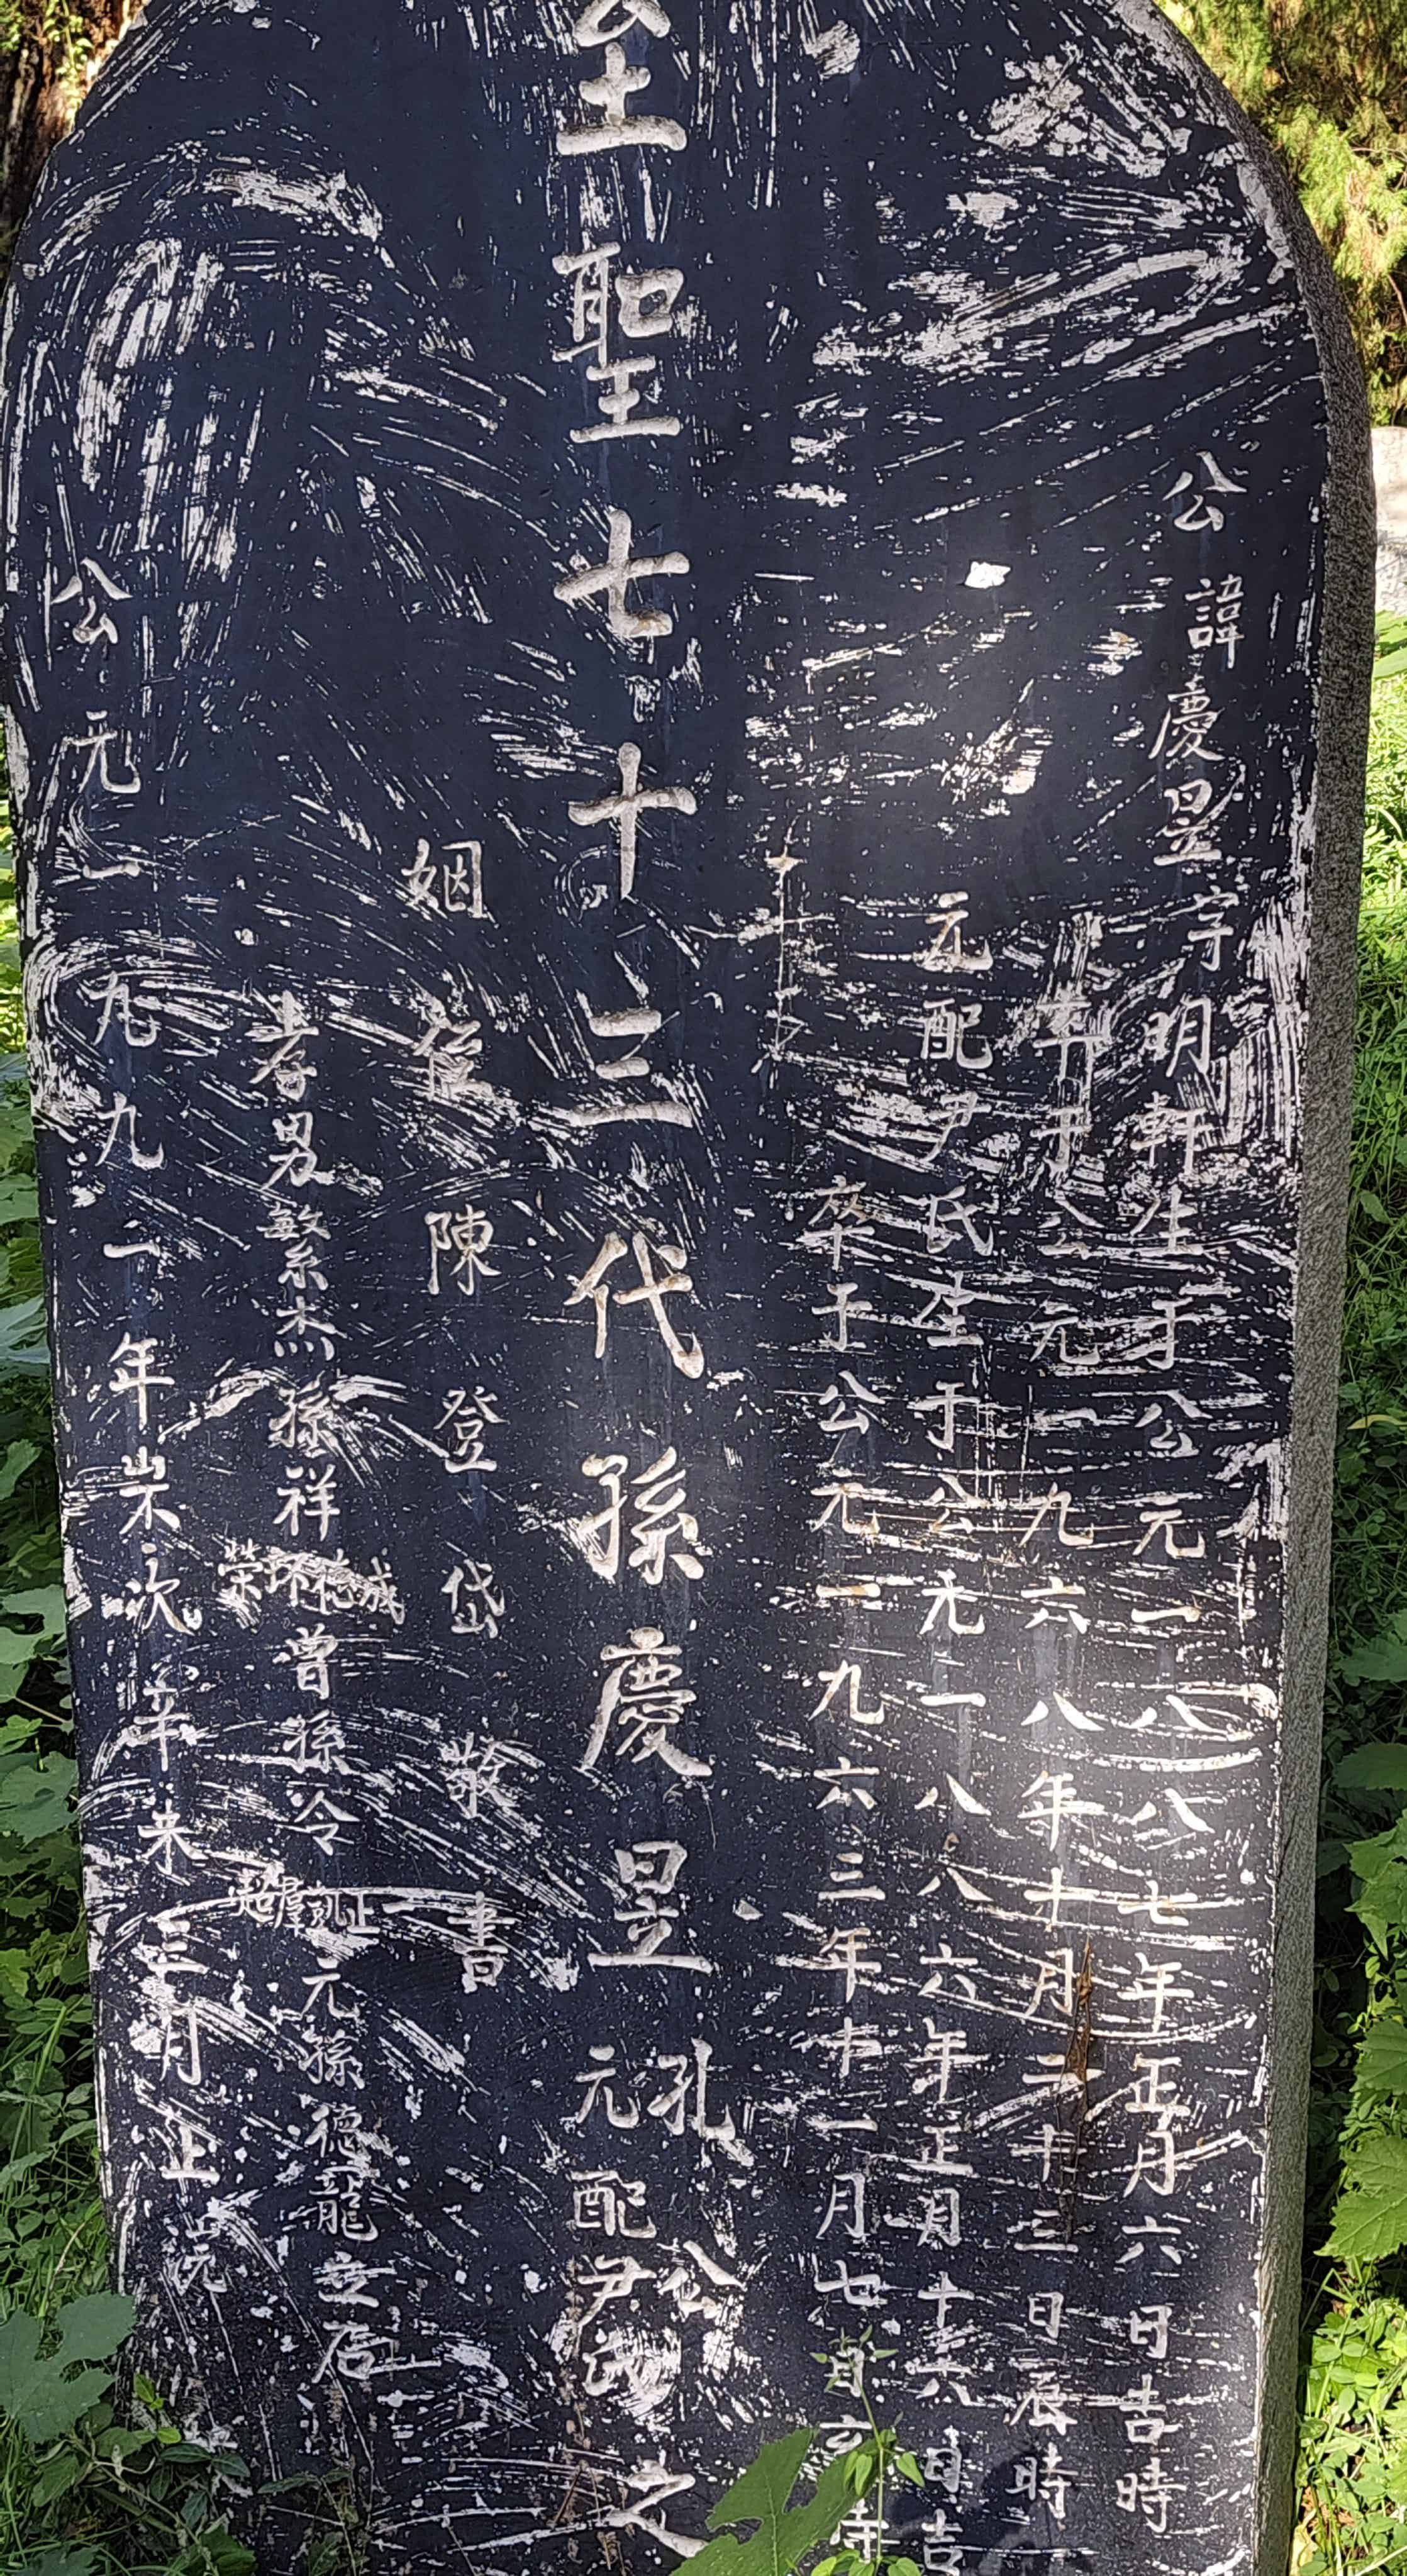 公諱慶昱字明軒生于公元一八八七年正月六日吉時
卒于公元一九六八年十月二十三日辰時
元配尹氏生于公元一八八六年正月十六日吉
卒于公元一九六三年十一月七日
至聖七十二代孫慶昱孔公
元配尹氏之
姻侄陳登岱敬書
孝男繁杰孫祥成榮曾孫令正凱群超元孫德龍立石
公元一九九一年岁次辛未三月上浣